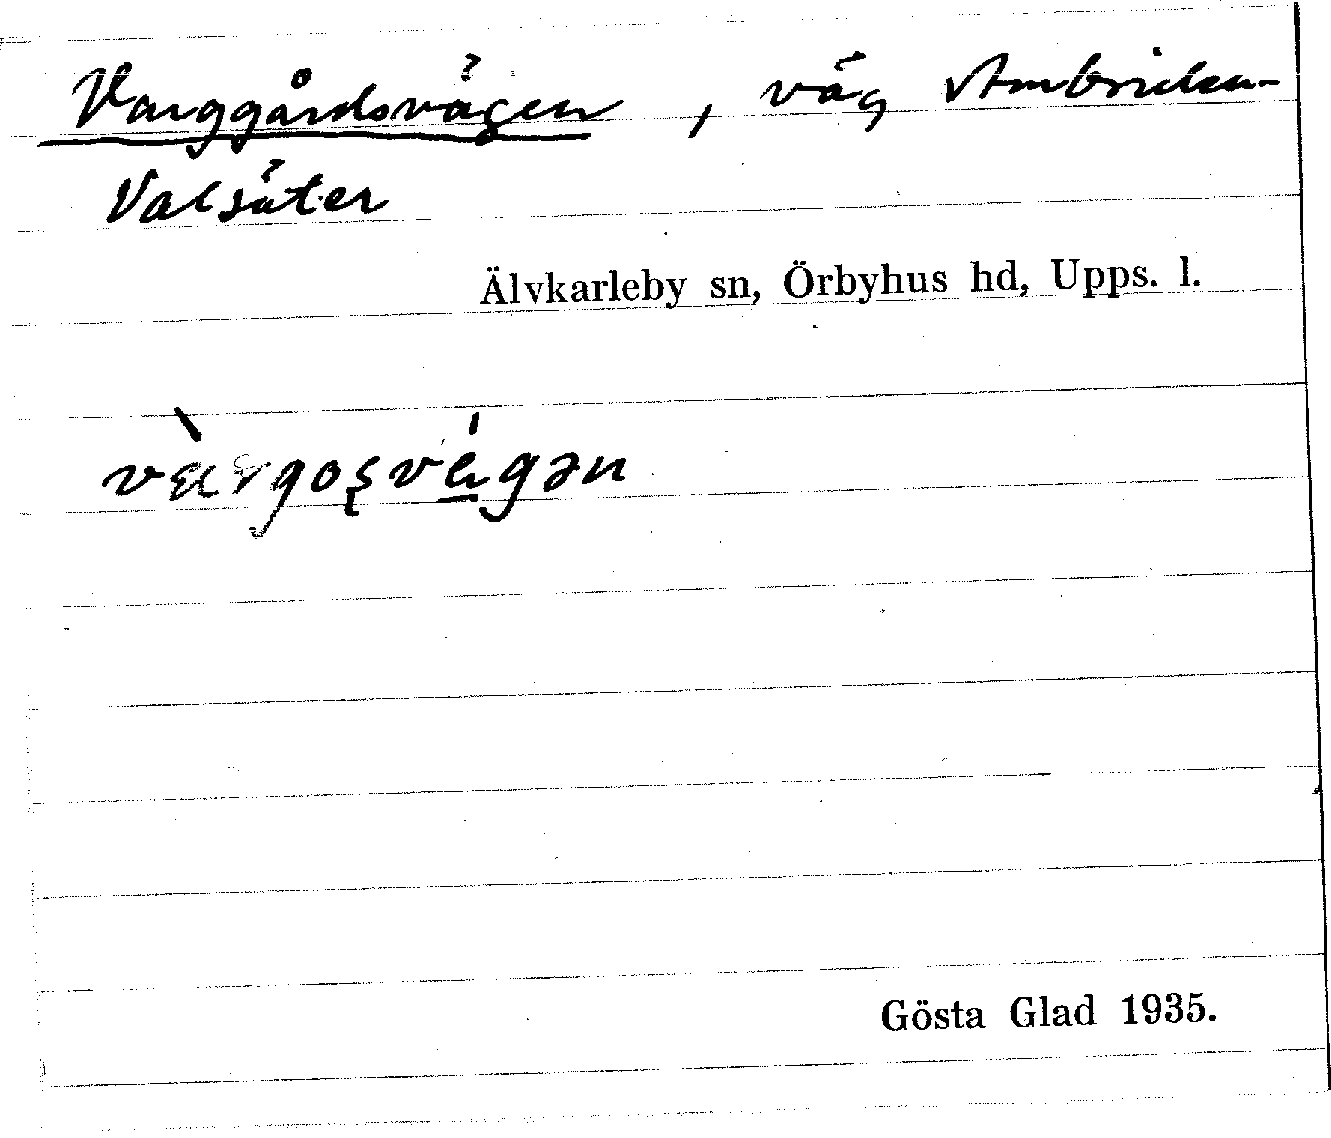 Varggårdsvägen, väg Ambricka-
Valsäter
Älvkarleby sn, Örbyhus hd, Upps. l.
Gösta Glad 1935.